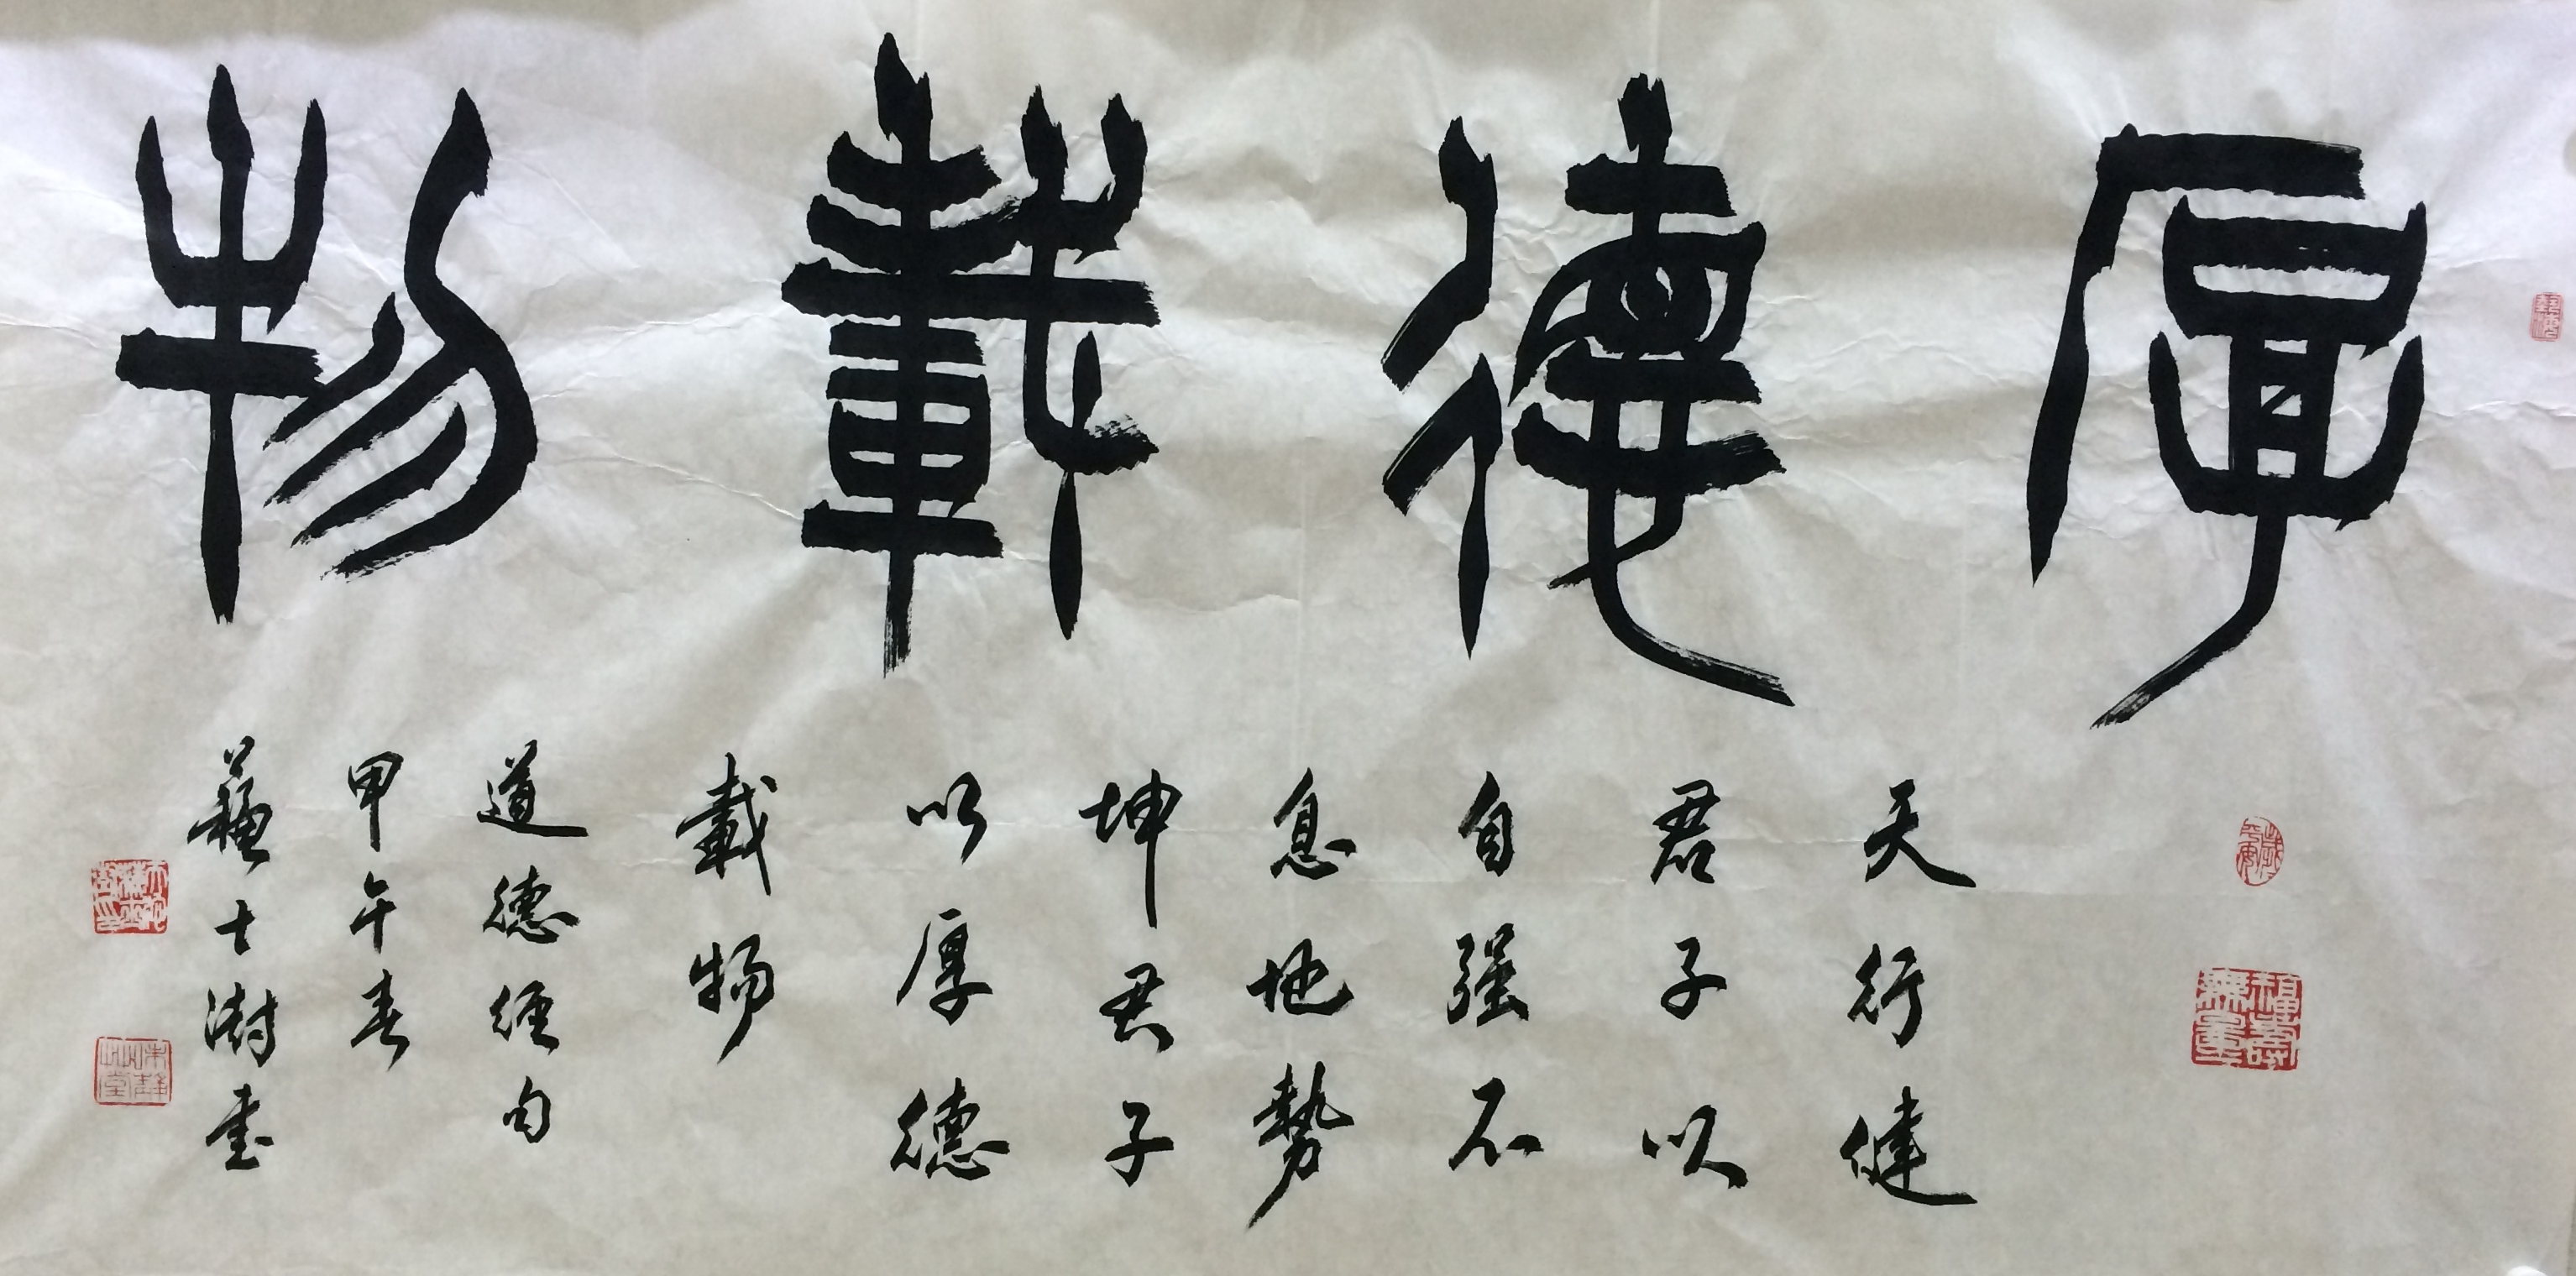 厚德載物
天行健
君子以
自强不
息地勢
坤君子
以厚德
載物
道德經句
甲午春
蘇士澍書
福壽無量